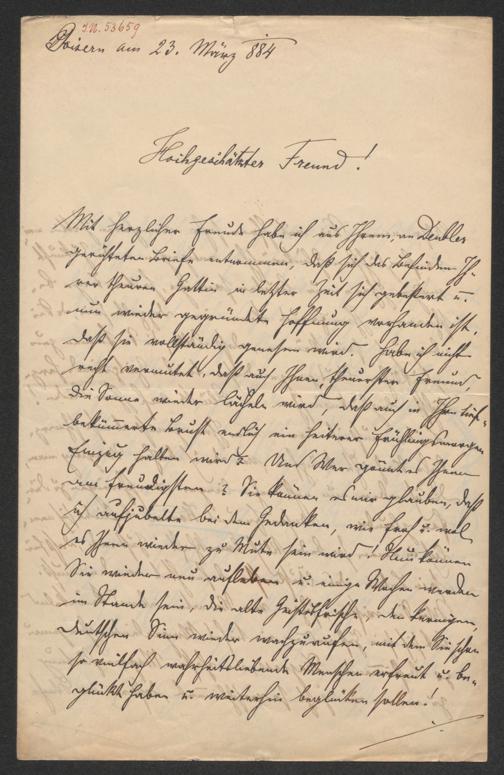 I.N. 53659
Goisern am 23. März 884
Hochgeschätzter Freund!
Mit herzlicher Freude habe ich aus Ihrem, an Deubler
gerichteten Briefe entnommen, daß sich das Befinden Ih-
rer theuren Gattin in letzter Zeit sich gebessert u.
nun wieder gegründete Hoffnung vorhanden ist,
daß sie vollständig genesen wird. Habe ich nicht
recht vermutet, daß auch Ihnen, theuerster Freund
die Sonne wieder lächeln wird daß auch in Ihre tief-
bekümmerte Brust endlich ein heiterer Frühlingsmorgen
Einzug halten wird? Und Wer gönnt es Ihnen
am freudigsten? Sie können es mir glauben, daß
ich aufjubelte bei dem Gedanken, wie froh u. wol
es Ihnen wieder zu Mute sein wird! Nun können
Sie wieder neu aufleben u. einige Wochen werden
im Stande sein, die alte Geistesfrische, den kernigen
deutschen Sinn wieder wachzurufen, mit dem Sie schon
so vielfach wahrheitsliebende Menschen erfreut u. be-
glückt haben u. weiterhin beglücken sollen!